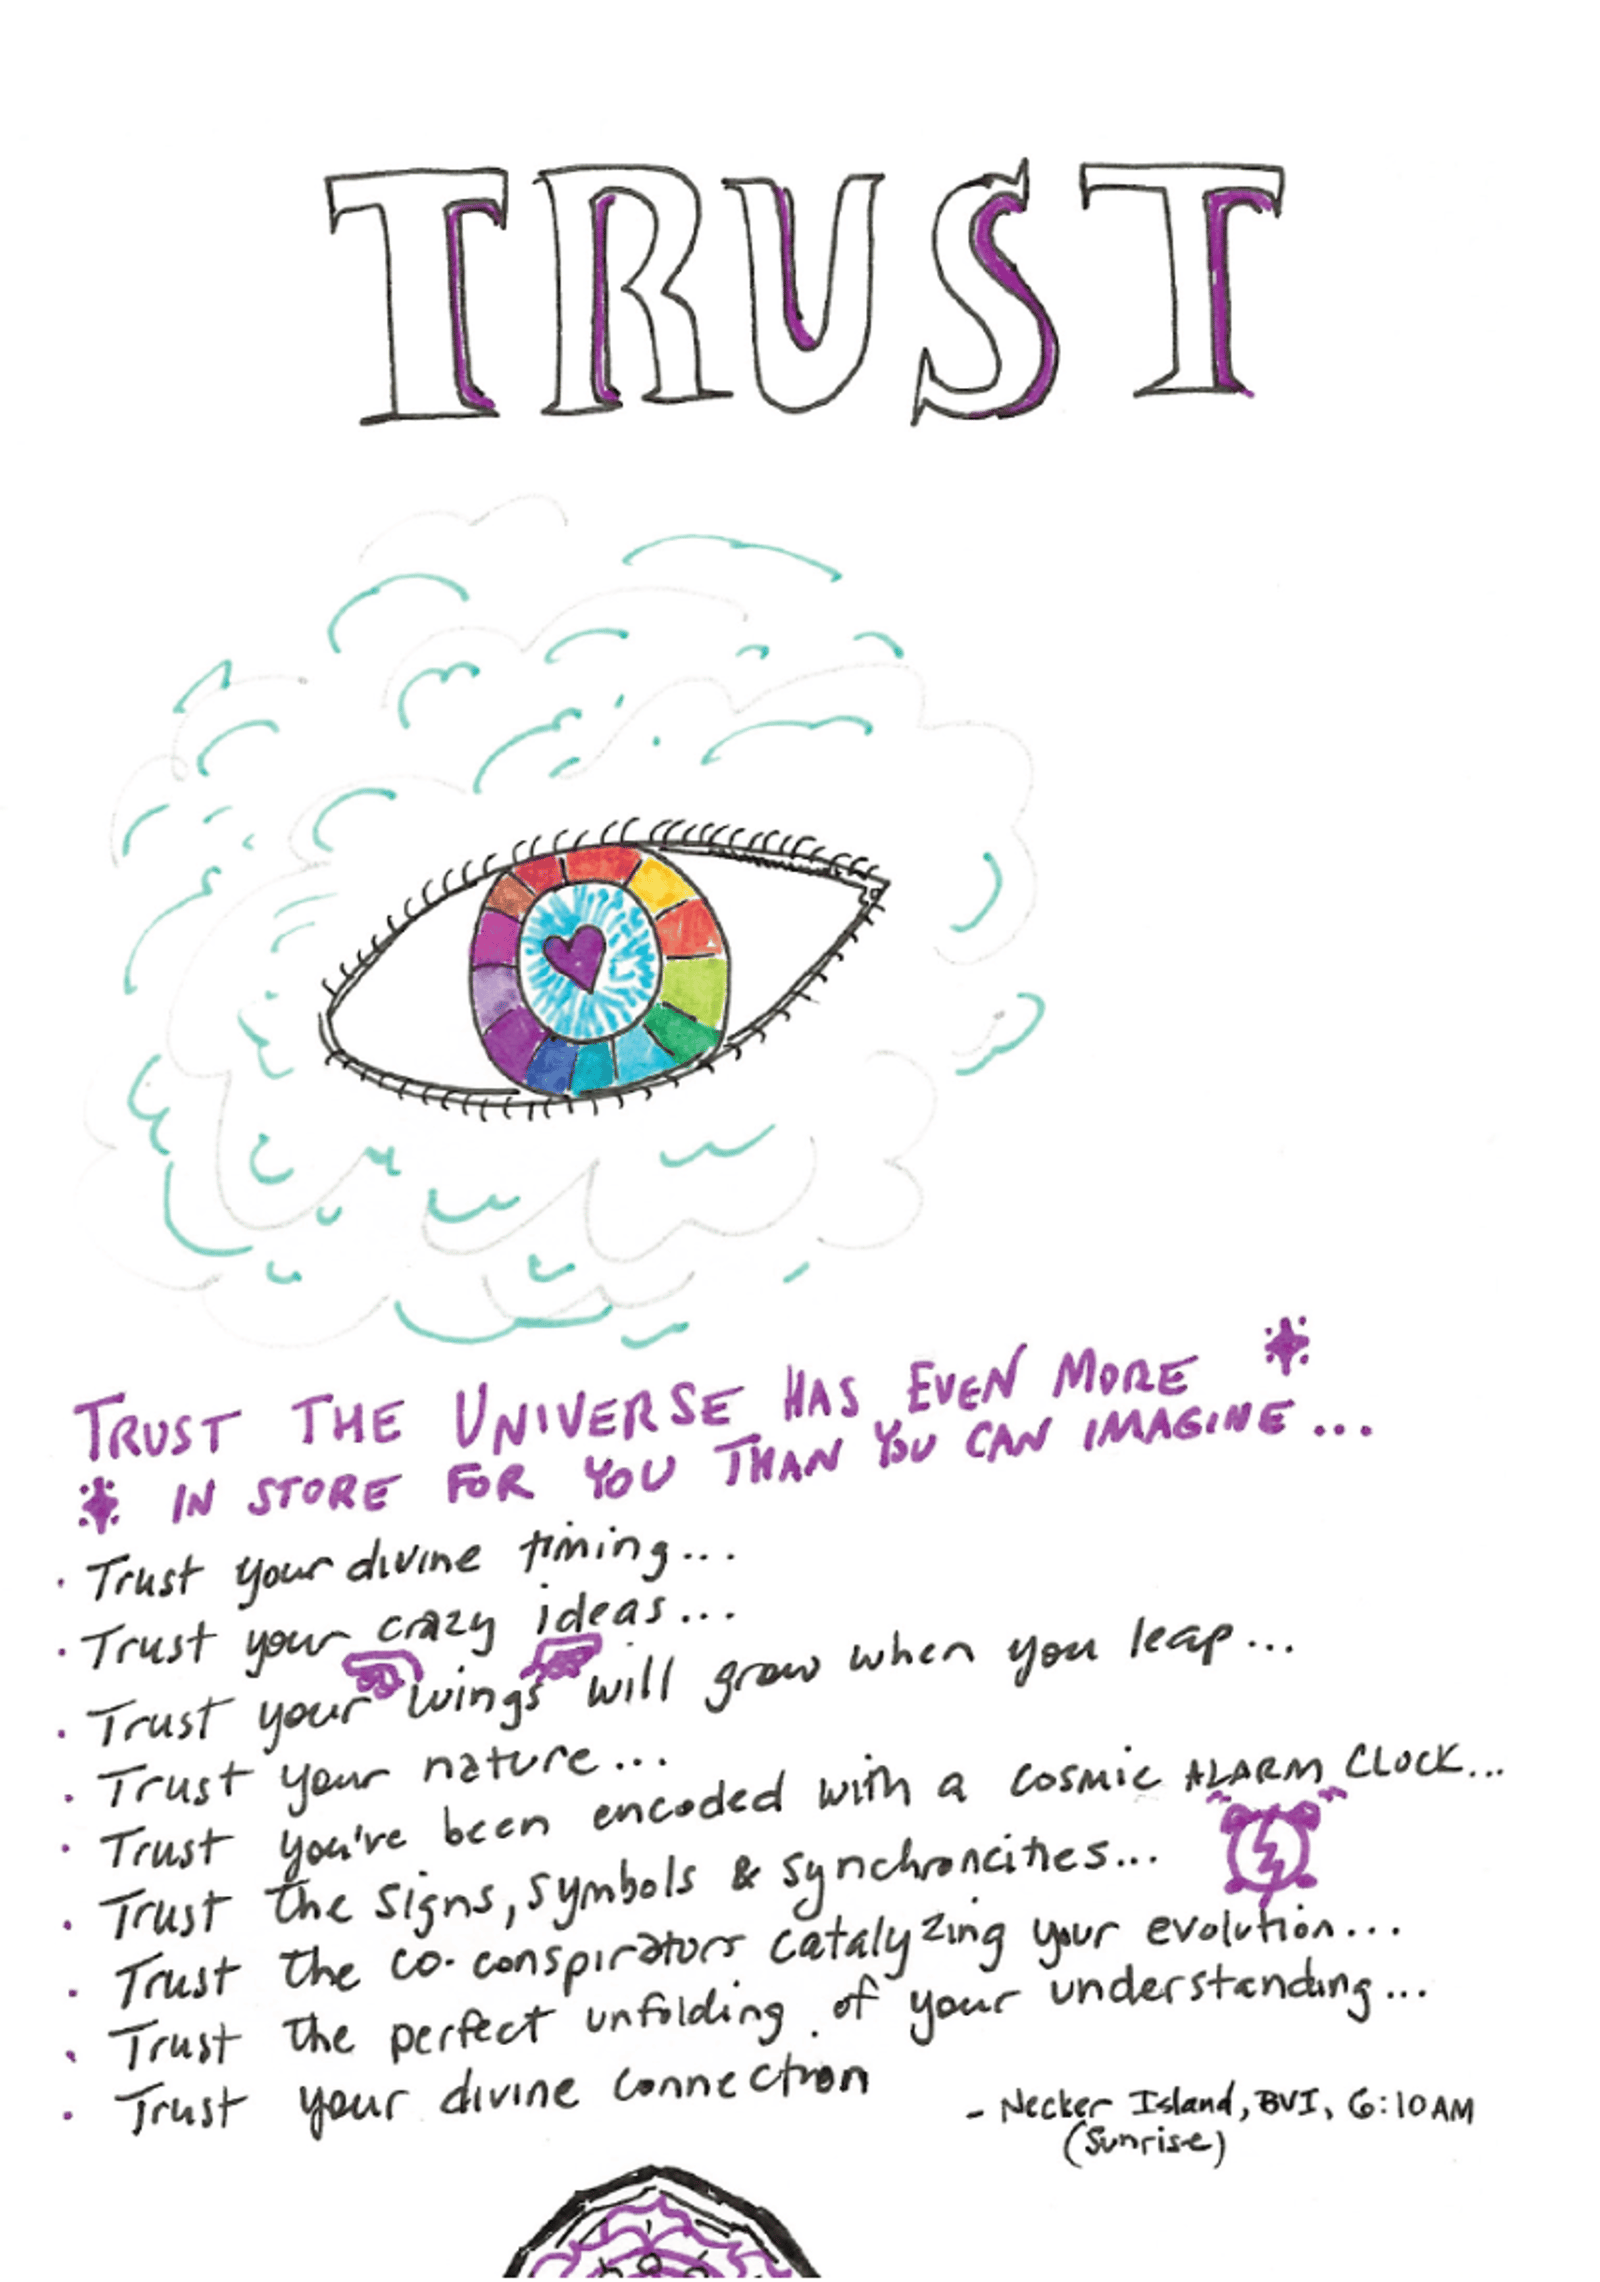 TRUST
TRUST THE UNIVERSE HAS EVEN MORE
IN STORE FOR YOU THAN YOU CAN IMAGINE...
· Trust your divine timing...
· Trust your crazy ideas...
· Trust your wings will grow when you leap...
· Trust your nature...
· Trust you've been encoded with a cosmic ALARM CLOCK...
· Trust the signs, symbols & synchroncities...
· Trust the co-conspirators catalyzing your evolution...
· Trust the perfect unfolding of your understanding...
· Trust your divine connection
- Necker Island, BVI, 6:10AM
(Sunrise)